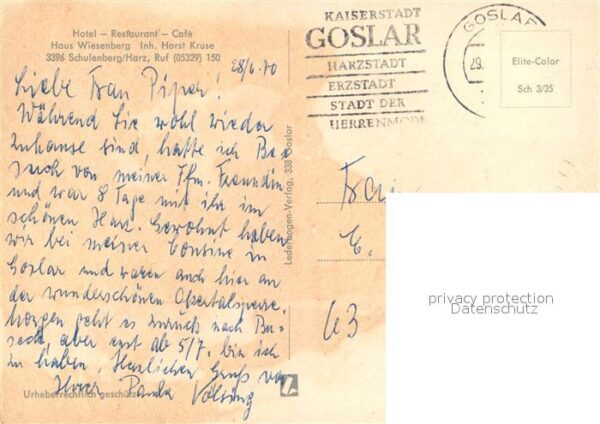 Hotel – Restaurant – Café
Haus Wiesenberg Inh. Horst Kruse
3396 Schulenberg/Harz, Ruf (05329) 150
28/6.70
Liebe Frau Piper!
Während Sie wohl wieder
zuhause sind, hatte ich Be=
such von meiner Ffm. Freundin
und war 8 Tage mit ihr im
schönen Harz. Gewohnt haben
wir bei meiner Cousine in
Goslar und waren auch hier an
der wunderschönen Okertalsperre.
Morgen geht es zurück nach
aber erst ab 5/7. bin ich
zu haben. Herzlichen Gruß von
Ihrer Paula
Urheberrechtlich geschützt
Lederbogen-Verlag, 338 Goslar
KAISERSTADT
GOSLAR
HARZSTADT
ERZSTADT
STADT DER
HERRENMODE
GOSLAR
29.
Elite-Color
Sch 3/35
Frau
E.
63
privacy protection
Datenschutz